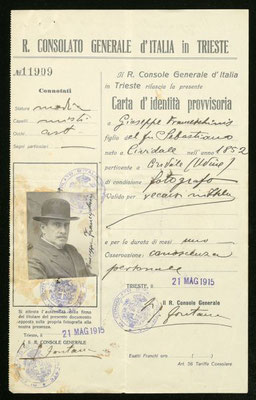 R. CONSOLATO GENERALE d'ITALIA in TRIESTE
№ 11909
Connotati
Statura media
Capelli misti
Occhi
Segni particolari
Il R. Console Generale d'Italia
in Trieste rilascia la presente
Carta d'identità provvisoria
a Giuseppe
figlio del fu Sebastiano
nato a Cividale nell'anno 1852
pertinente a Cividale (Udine)
di condizione fotografo
Valido per recarsi
e per la durata di mesi uno
Osservazioni: conoscenza
personale
TRIESTE, il 21 MAG 1915
Il R. Console Generale
Esatti Franchi oro
Art. 56 Tariffa Consolare
Si attesta l'autenticità della firma
del titolare del presente documento
apposta sulla propria fotografia alla
nostra presenza.
Trieste, il 21 MAG 1915
Il R. CONSOLE GENERALE